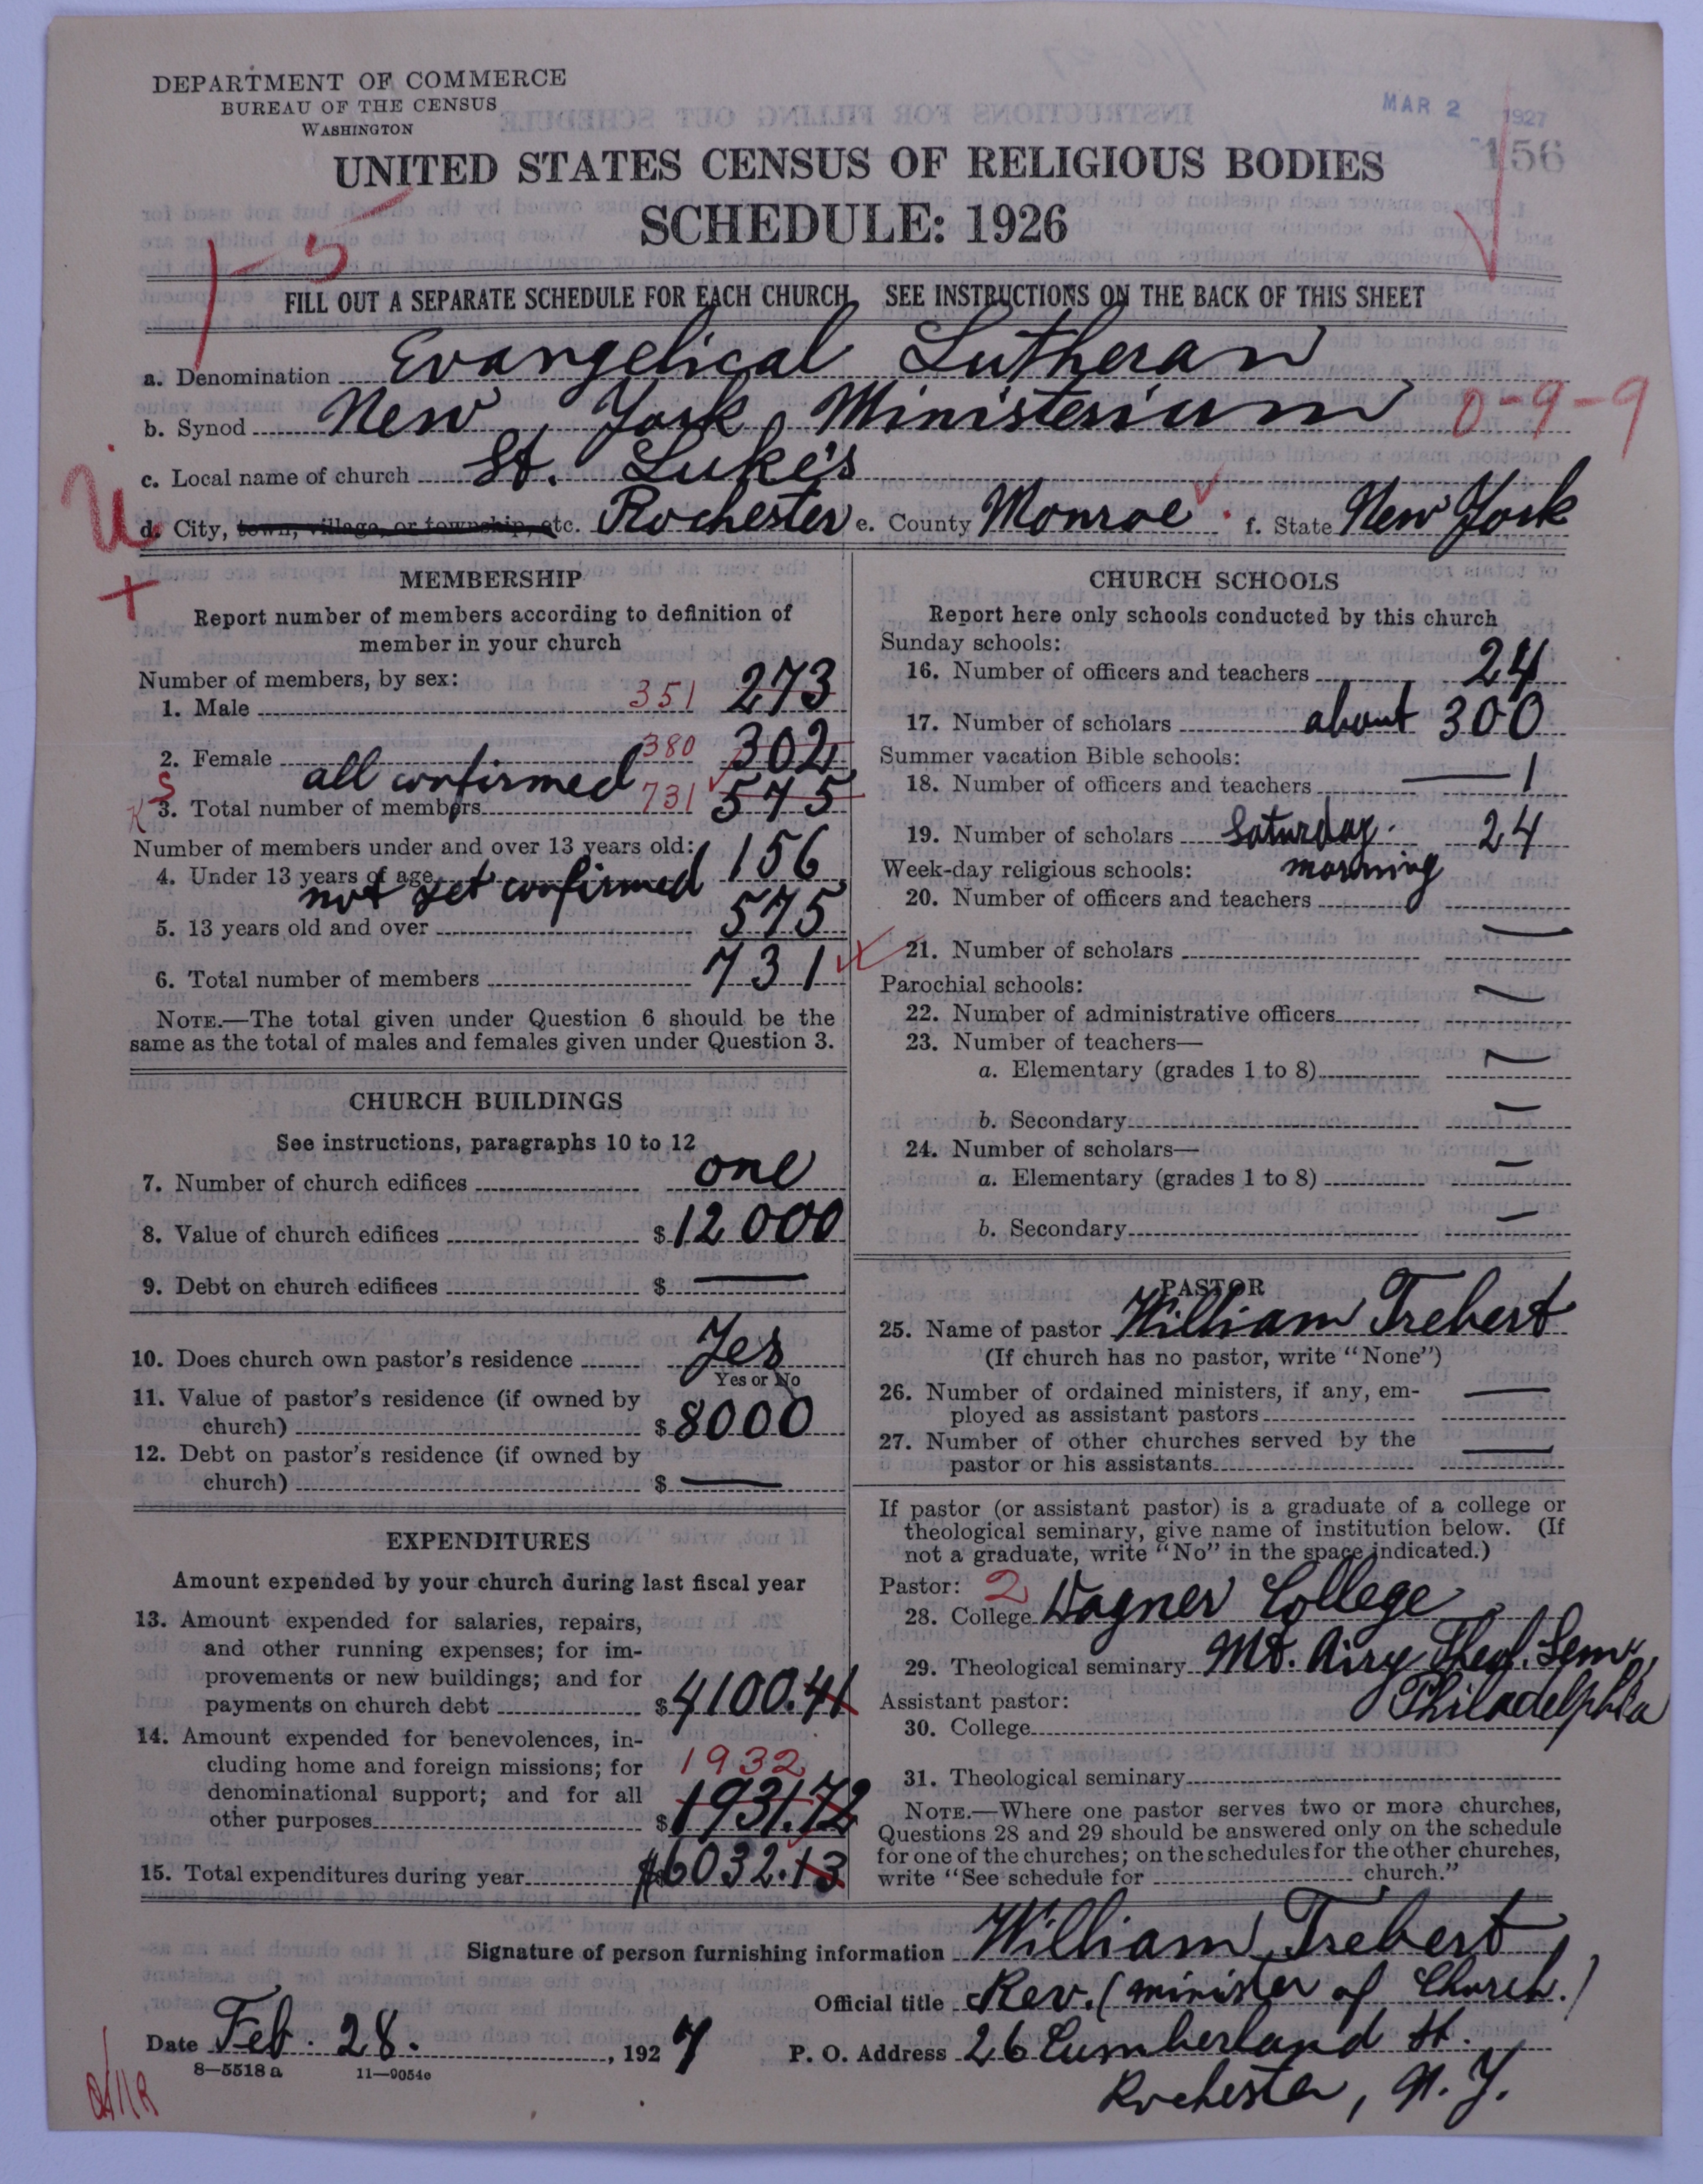 DEPARTMENT OF COMMERCE
BUREAU OF THE CENSUS
WASHINGTON
MAR 2 1927
156
UNITED STATES CENSUS OF RELIGIOUS BODIES
SCHEDULE: 1926
FILL OUT A SEPARATE SCHEDULE FOR EACH CHURCH. SEE INSTRUCTIONS ON THE BACK OF THIS SHEET
a. Denomination Evangelical Lutheran
b. Synod New York Ministerium 0-9-9
c. Local name of church St. Luke's
d. City, town, village, or township, etc. Rochester e. County Monroe f. State New York
MEMBERSHIP
Report number of members according to definition of
member in your church
Number of members, by sex:
1. Male 351 273
2. Female 380 302
all confirmed
3. Total number of members 731 575
Number of members under and over 13 years old:
4. Under 13 years of age 156
not yet confirmed
5. 13 years old and over 575
6. Total number of members 731
NOTE.—The total given under Question 6 should be the
same as the total of males and females given under Question 3.
CHURCH BUILDINGS
See instructions, paragraphs 10 to 12
7. Number of church edifices one
8. Value of church edifices $12000
9. Debt on church edifices $ —
10. Does church own pastor's residence Yes
Yes or No
11. Value of pastor's residence (if owned by
church) $8000
12. Debt on pastor's residence (if owned by
church) $ —
EXPENDITURES
Amount expended by your church during last fiscal year
13. Amount expended for salaries, repairs,
and other running expenses; for im-
provements or new buildings; and for
payments on church debt $4100.41
14. Amount expended for benevolences, in-
cluding home and foreign missions; for 1932
denominational support; and for all
other purposes $1931.72
15. Total expenditures during year $6032.13
CHURCH SCHOOLS
Report here only schools conducted by this church
Sunday schools:
16. Number of officers and teachers 24
17. Number of scholars about 300
Summer vacation Bible schools:
18. Number of officers and teachers — 1
19. Number of scholars Saturday 24
Week-day religious schools: morning
20. Number of officers and teachers
21. Number of scholars —
Parochial schools:
22. Number of administrative officers —
23. Number of teachers—
a. Elementary (grades 1 to 8) —
b. Secondary —
24. Number of scholars—
a. Elementary (grades 1 to 8) —
b. Secondary —
PASTOR
25. Name of pastor William Trebert
(If church has no pastor, write "None")
26. Number of ordained ministers, if any, em-
ployed as assistant pastors —
27. Number of other churches served by the
pastor or his assistants —
If pastor (or assistant pastor) is a graduate of a college or
theological seminary, give name of institution below. (If
not a graduate, write "No" in the space indicated.)
Pastor: 2
28. College Wagner College
29. Theological seminary Mt. Airy Theol. Sem.,
Assistant pastor: Philadelphia
30. College
31. Theological seminary
NOTE.—Where one pastor serves two or more churches,
Questions 28 and 29 should be answered only on the schedule
for one of the churches; on the schedules for the other churches,
write "See schedule for church."
Signature of person furnishing information William Trebert
Official title Rev. (minister of Church.)
Date Feb. 28. , 1927
P. O. Address 26 Cumberland St.
Rochester, N. Y.
8—5518 a 11—9054c